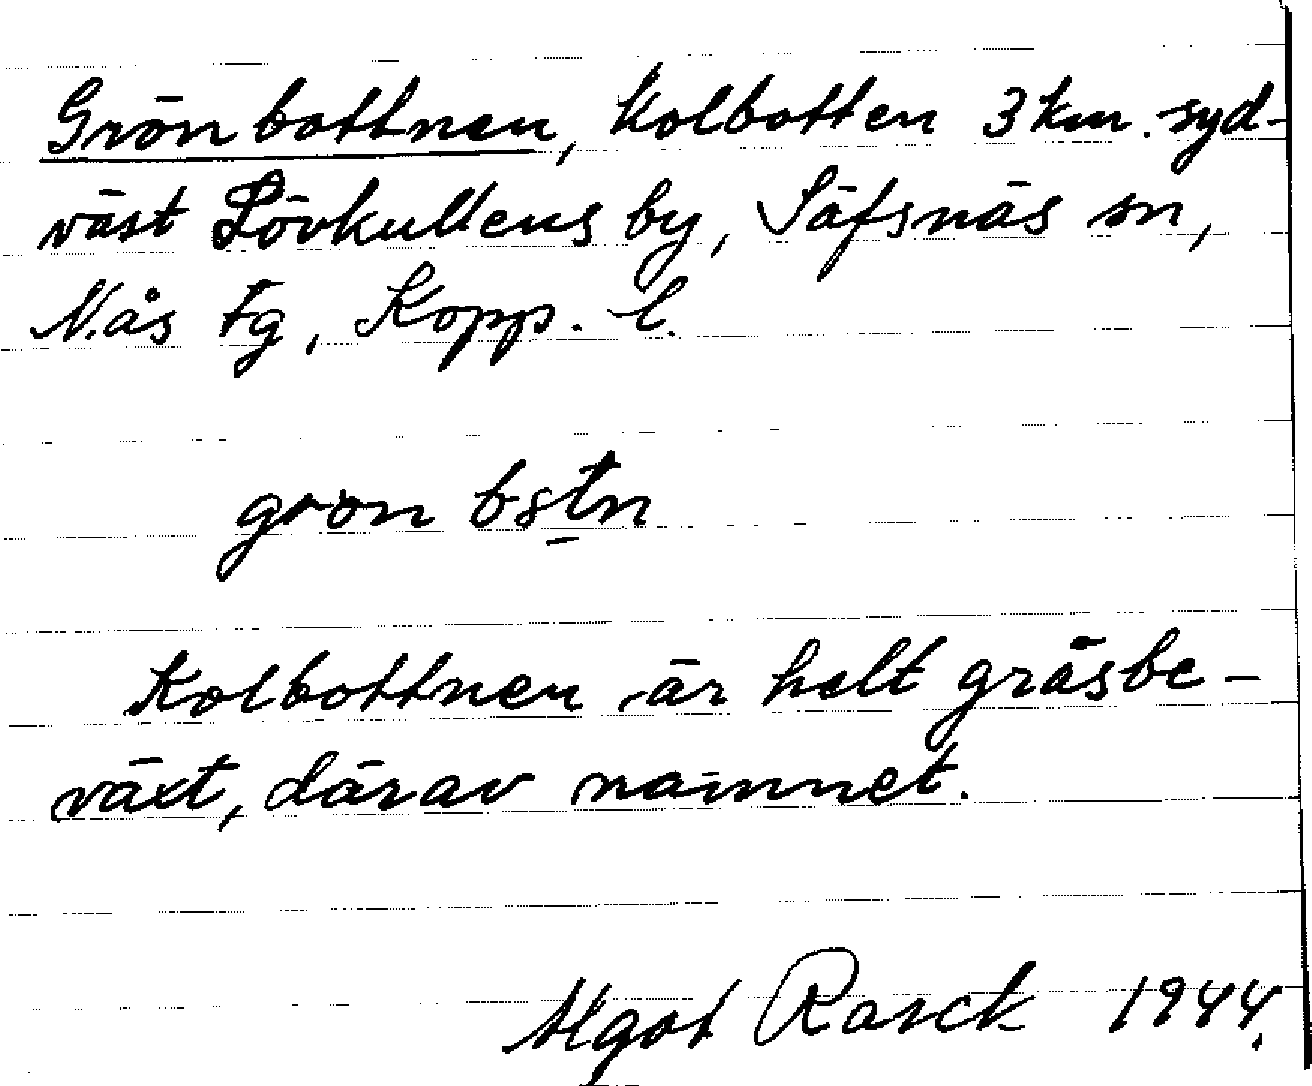 Grönbottnen, kolbotten 3 km. syd-
väst Lövkullens by, Säfsnäs sn,
Nås tg, Kopp. l.
Kolbottnen är helt gräsbe-
växt, därav namnet.
Algot Rasck 1944.